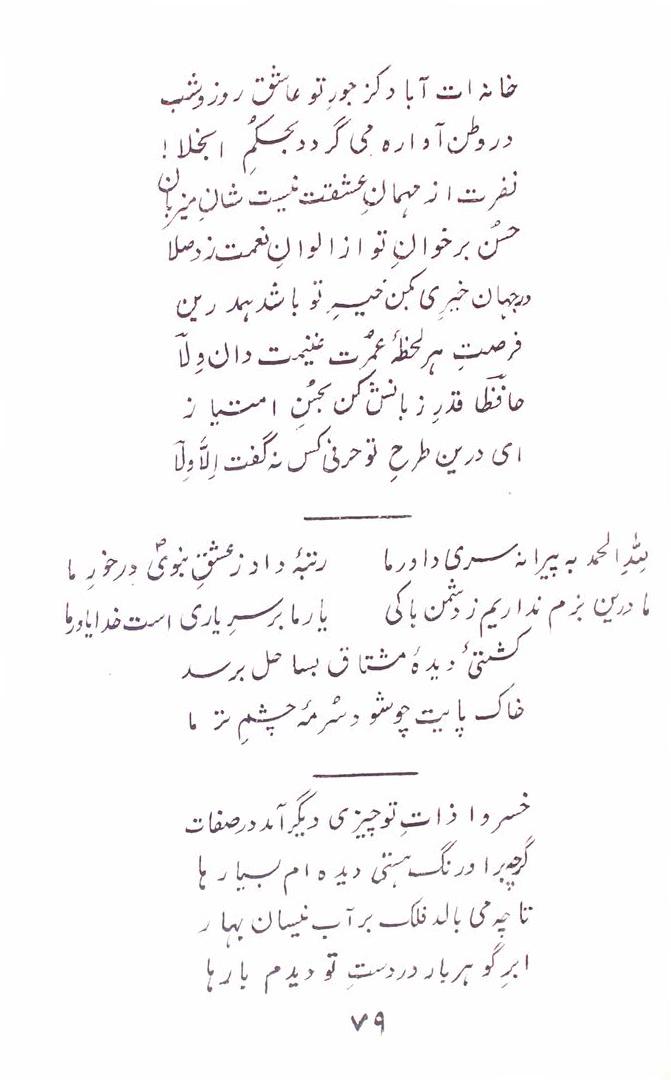 خانہ ات آباد کز جورِ تو عاشق روز و شب
در وطن آوارہ می گردد بحکمِ الجلا!
نفرت از مہمانِ عشقت نیست شانِ میزبان
حسن بر خوانِ تو از الوانِ نعمت زد صلا
در جہان خیری بکن خیرِ تو باشد ہمدرین
فرصتِ ہر لحظۂ عمرت غنیمت دان و لا
حافظا قدرِ زبانش کن بحسنِ امتیاز
ای درین طرحِ تو حرفی کس نہ گفت اِلّا وَلا
للہ الحمد بہ پیرانہ سری داورِ ما    رتبۂ داد ز عشقِ نبویؐ درخورِ ما
ما درین بزم نداریم ز دشمن باکی    یارِ ما برسرِ یاری است خدا یاورِ ما
کشتیٔ دیدۂ مشتاق بساحل برسد
خاکِ پایت چو شود سُرمۂ چشمِ ترِ ما
خسروا ذاتِ تو چیزی دیگر آمد در صفات
گرچہ بر اورنگِ ہستی دیدہ ام بسیارہا
تا چہ می بالد فلک بر آبِ نیسان بہار
ابرِ گوہربار در دستِ تو دیدم بارہا
۷۹